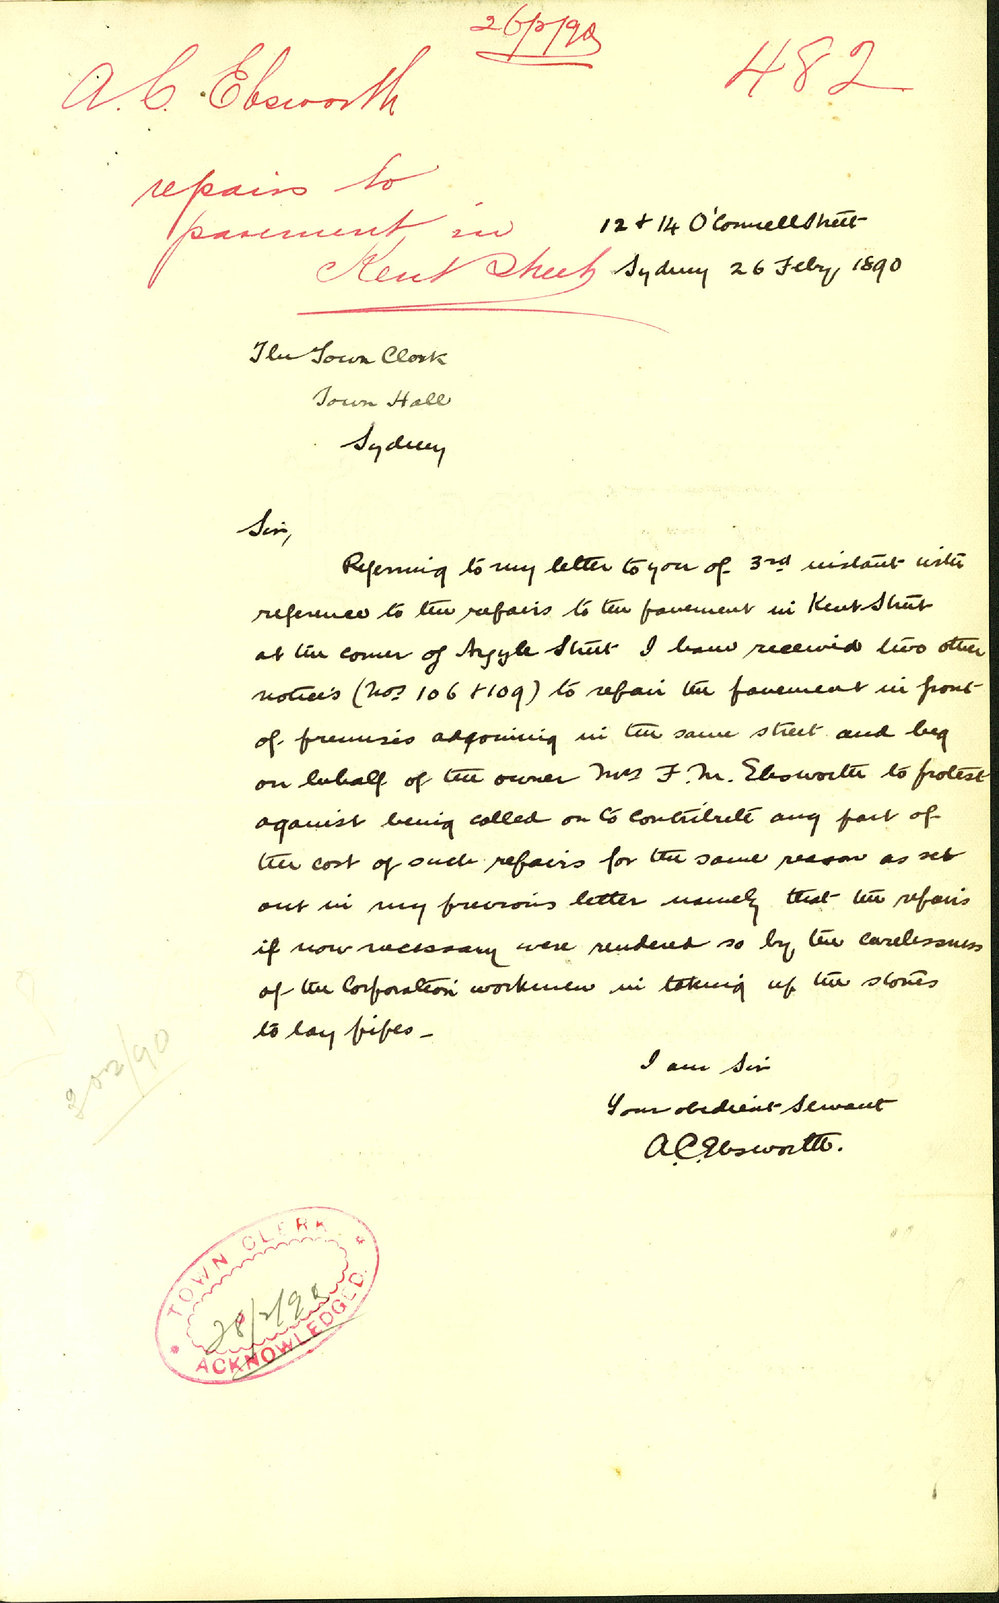 26/2/90
482
A. C. Ebsworth
repairs to
pavement in
Kent Street
12 & 14 O'Connell Street
Sydney 26 Feby, 1890
The Town Clerk
Town Hall
Sydney
Sir,
Referring to my letter to you of 3rd instant with
reference to the repairs to the pavement in Kent Street
at the corner of Argyle Street I have received two other
notices (Nos 106 & 109) to repair the pavement in front
of premises adjoining in the same street and beg
on behalf of the owner Mrs F. M. Ebsworth to protest
against being called on to contribute any part of
the cost of such repairs for the same reason as set
out in my previous letter namely that the repairs
if now necessary were rendered so by the carelessness
of the Corporation workmen in taking up the stones
to lay pipes _
202/90
I am Sir
Your obedient Servant
A.C. Ebsworth.
TOWN CLERK
28/2/90
ACKNOWLEDGED.